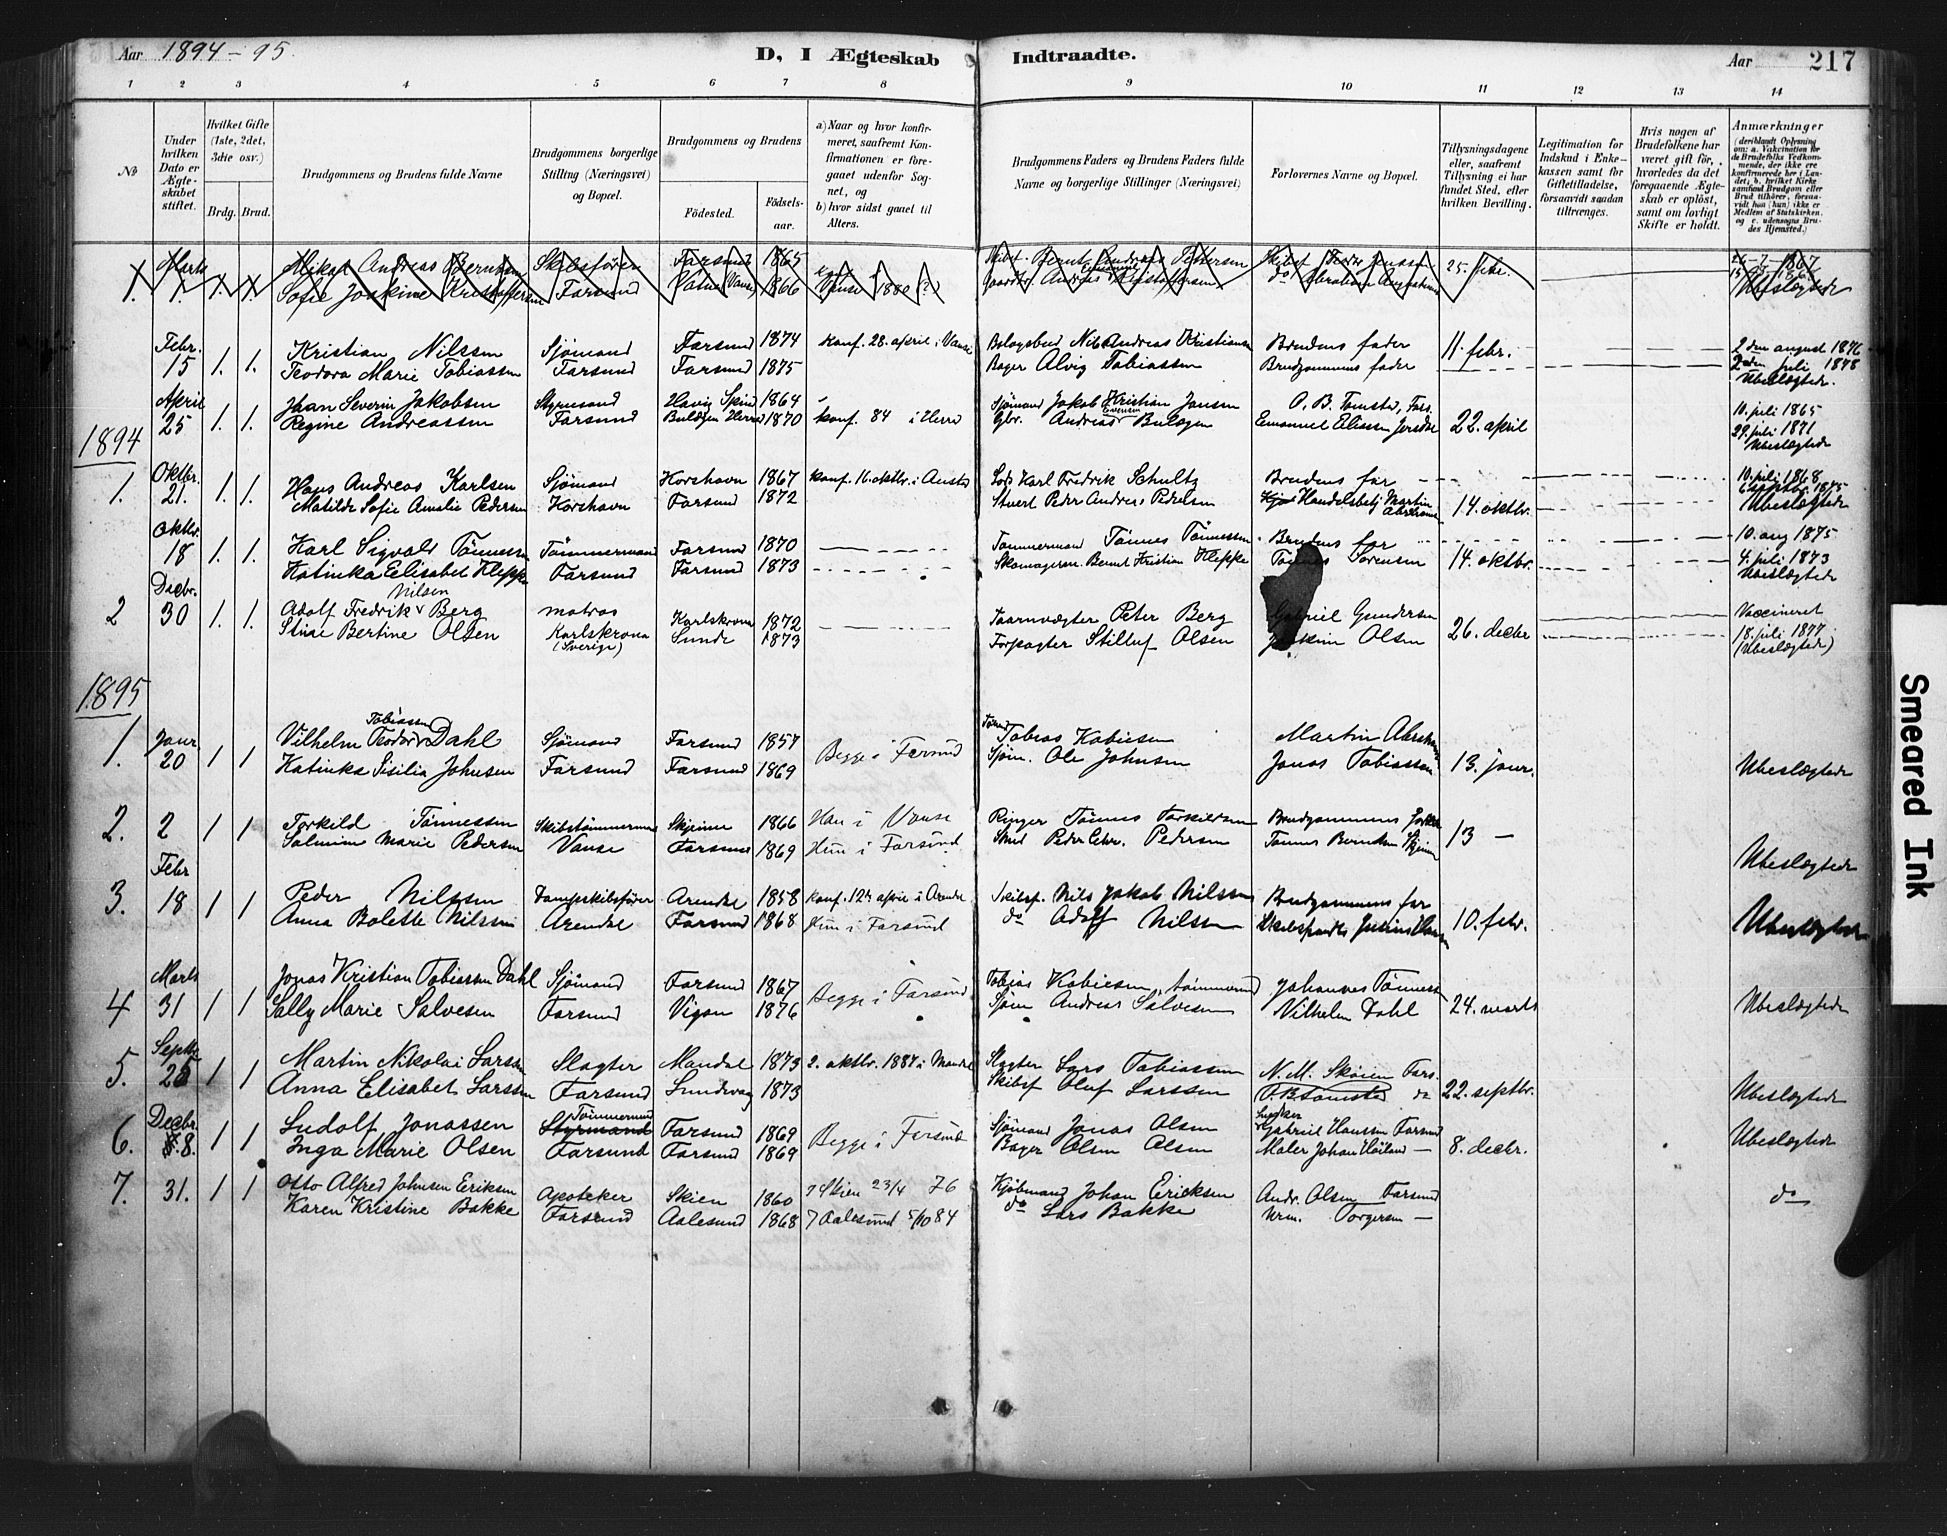 Aar 1894-95
D, I Ægteskab Indtraadte.
Aar 217
1 2 3 4 5 6 7 8 9 10 11 12 13 14
№
Under hvilken Dato er Ægteskabet stiftet.
Hvilket Gifte (1ste, 2det, 3die osv.)
Brdg. Brud.
Brudgommens og Brudens fulde Navne
Brudgommens borgerlige Stilling (Næringsvei) og Bopæl.
Brudgommens og Brudens
Fødested. Fødselsaar.
a) Naar og hvor konfirmeret, saafremt Konfirmationen er foregaaet udenfor Sognet, og
b) hvor sidst gaaet til Alters.
Brudgommens Faders og Brudens Faders fulde Navne og borgerlige Stillinger (Næringsvei)
Forlovernes Navne og Bopæl.
Tillysningsdagene eller, saafremt Tillysning ei har fundet Sted, efter hvilken Bevilling.
Legitimation for Indskud i Enkekassen samt for Giftetilladelse, forsaavidt saadan tiltrænges.
Hvis nogen af Brudefolkene har været gift før, hvorledes da det foregaaende Ægteskab er opløst, samt om lovligt Skifte er holdt.
Anmærkninger (deriblandt Oplysning om: a. Vaccination for de Brudefolks Vedkommende, der ikke ere konfirmerede her i Landet; b. hvilket Kirkesamfund Brudgom eller Brud tilhører, forsaavidt han (hun) ikke er Medlem af Statskirken, og c. udensogns Brudes Hjemsted.)
1. Marts 1. 1. 1. Mikal Andreas Berntsen Skibsfører Farsund 1865 Skibsf. Bernt Andreas Pettersen 25. febr.
Sofie Joakine Kristoffersen Farsund Vatne (Vanse) 1866 Vanse 1880 Andreas Kristoffersen Ubeslægtede
Febr. 15 1. 1. Kristian Nilssen Sjømand Farsund 1874 konf. 28. april i Vanse Nils Andreas Kristiansen Brudens fader 11. febr. 2den august 1876
Teodora Marie Tobiassen Farsund Farsund 1875 Bager Alvig Tobiassen Brudgommens fader 2den juli 1878
Ubeslægtede.
April 25 1. 1. Johan Severin Jakobsen Styrmand Havig Spind 1864 Sjømand Jakob Kristian Jensen P. B. Tomstad, Fars. 10. juli 1865
Regine Andreassen Farsund Herred 1870 konf. 84 i Herred Gbr. Andreas Emanuel Eliassen 22. april 29. juli 1871
Ubeslægtede
1894
1. Oktbr. 21. 1. 1. Hans Andreas Karlsen Sjømand Korshavn 1867 konf. 16. oktbr. i Austad Lods Karl Fredrik Schultz Brudens far 10. juli 1868
Matilde Sofie Amalie Pedersen Korshavn Farsund 1872 Stuert Peder Andreas Pedersen Handelsbetj. Martin Abrahamsen 14. oktbr. 1875
Ubeslægtede
Oktbr. 18 1. 1. Karl Sigvald Tønnessen Tømmermand Farsund 1870 Tømmermand Tønnes Tønnessen Brudens far 10. aug 1875
Katinka Elisabet Kleppe Farsund Farsund 1873 Skomagersv. Bernt Kristian Kleppe Sørensen 14. oktbr. 4. juli 1873
Ubeslægtede
2 Decbr. 30 1. 1. Adolf Fredrik Nilsen Berg matros Karlskrona 1872 Taarnvægter Peter Berg Gabriel Gundersen Vaccineret
Stine Bertine Olsen Karlskrona (Sverige) Lunde 1873 Forpagter Olsen Joakim Olsen 26. decbr 18. juli 1877
(Ubeslægtede)
1895
1. Janr. 20 1 1 Vilhelm Teodor Tobiassen Dahl Sjømand Farsund 1857 Begge i Farsund Tømmd Tobias Kobiesen Martin Abrahamsen
Katinka Sisilia Johnsen Farsund Farsund 1869 Sjøm. Ole Johnsen Jonas Tobiassen 13. janr. Ubeslægtede
2. 2 Febr 1 1 Torkild Tønnessen Skibstømmermand Skjeime 1866 Han i Vanse Ringer Tønnes Torkildsen Brudgommens Fader
Salmine Marie Pedersen Vanse Farsund 1869 Hun i Farsund Smed Peder Chr. Pedersen Tønnes Berntsen Skjeime 13 — Ubeslægtede
3. 18 1 1 Peder Nilssen Dampskibsfører Arendal 1858 konf. 12te april i Arendal Skibsf. Nils Jakob Nilssen Brudgommens far
Anna Bolette Nilssen Arendal Farsund 1868 Hun i Farsund do Adolf Nilssen 10. febr. Ubeslægtede
4 Marts 31 1 1 Jonas Kristian Tobiassen Dahl Sjømand Farsund 1867 Begge i Farsund Tobias Kobiesen, tømmermd Johannes Tønnessen
Sally Marie Salvesen Farsund Vigan 1876 Sjøm Andreas Salvesen Vilhelm Dahl 24. marts Ubeslægtede
5. Septbr 25 1 1 Martin Nikolai Larssen Slagter Mandal 1873 2. oktbr. 1887 i Mandal Slagter Lars Tobiassen N. M. Skeien Fars.
Anna Elisabet Larssen Farsund Lundevaag 1873 Skibsf Oluf Larssen P. B. Tomstad do 22. septbr. Ubeslægtede
6. Decbr. 8. 1 1 Ludolf Jonassen Tømmermand Styrmand Farsund 1869 Begge i Farsund Sjømand Jonas Olsen Gabriel Hanssen Farsund
Inga Marie Olsen Farsund Farsund 1869 Bager Olsen Maler Johan Høiland — 8. decbr. Ubeslægtede
7. 31. 1 1 Otto Alfred Johnsen Eriksen Apoteker Skien 1860 Skien 23/4 76 Kjøbmand Johan Ericksen Andr. Olsen Farsund do
Karen Kristine Bakke Farsund Aalesund 1868 Aalesund 5/10 84 do Lars Bakke Torgersen —
Smeared Ink